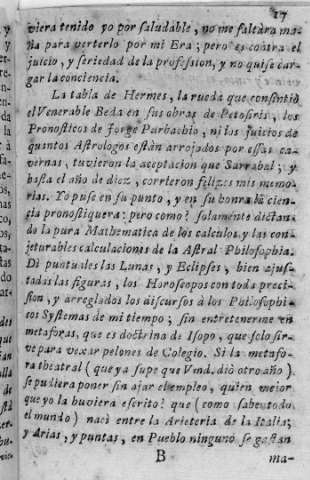 17
viera tenido yo por saludable, no me faltàra ma-
ña para verterlo por mi Era; pero es contra el
juicio, y seriedad de la profession, y no quise car-
gar la conciencia.
La tabla de Hermes, la rueda que consintiò
el Venerable Beda en sus obras de Petosiris, los
Pronosticos de Jorge Purbachio, ni los juicios de
quantos Astrologos estàn arrojados por essas ca-
vernas, tuvieron la aceptacion que Sarrabal; y
hasta el año de diez, corrieron felizes mis memo-
rias. Yo puse en su punto, y en su honra la cien-
cia pronostiquera: pero como? solamente dictan-
do la pura Mathematica de los calculos, y las con-
jeturables calculaciones de la Astral Philosophia.
Dì puntuales las Lunas, y Eclipses, bien ajus-
tadas las figuras, los Horoscopos con toda preci-
sion, y arreglados los discursos à los Philosophi-
cos Systemas de mi tiempo; sin entretenerme en
metaforas, que es doctrina de Isopo, que solo sir-
ve para vexar pelones de Colegio. Si la metafo-
ra theatral (que ya supe que Vmd. diò otro año)
se pudiera poner sin ajar el empleo, quien mejor
que yo la huviera escrito? que (como sabe todo
el mundo) nacì entre la Arieteria de la Italia;
y Arias, y puntas, en Pueblo ninguno se gastan
B
ma-